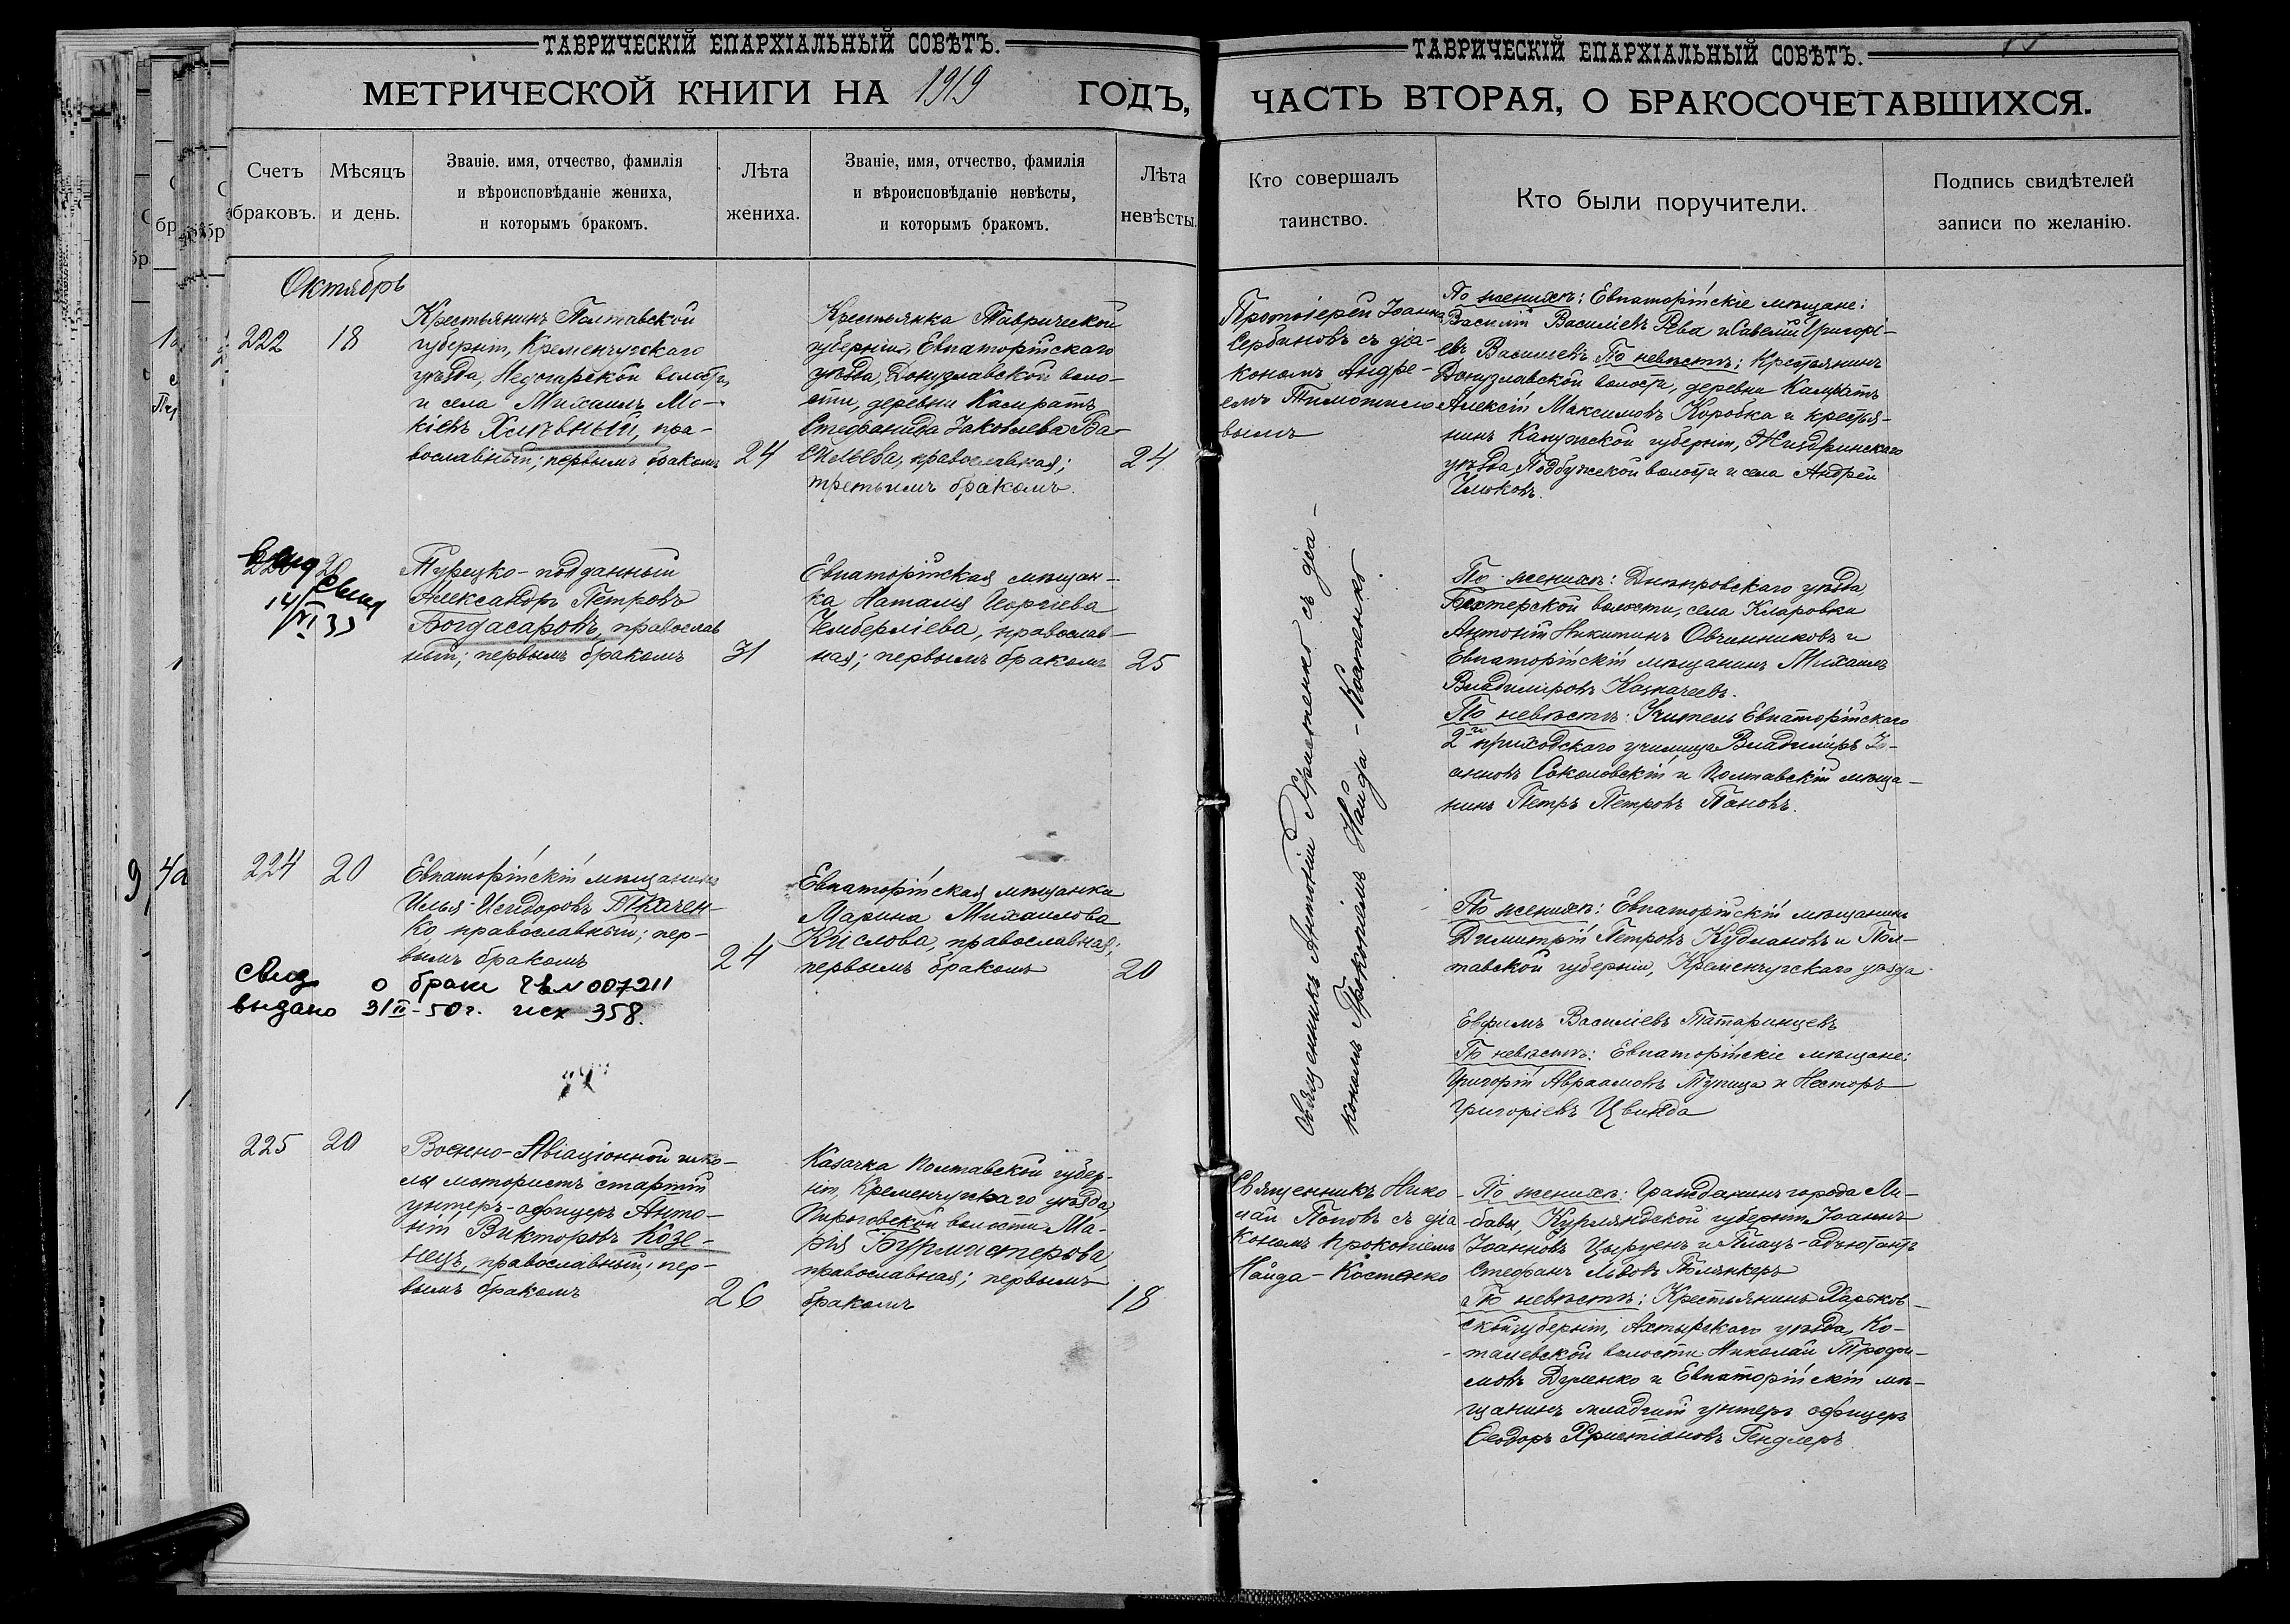 ТАВРИЧЕСКІЙ ЕПАРХІАЛЬНЫЙ СОВѢТЪ.
МЕТРИЧЕСКОЙ КНИГИ НА 1919 ГОДЪ,
Счетъ браковъ.
Мѣсяцъ и день.
Званіе. имя, отчество, фамилія
и вѣроисповѣданіе жениха,
и которымъ бракомъ.
Лѣта
жениха.
Званіе, имя, отчество, фамилія
и вѣроисповѣданіе невѣсты,
и которымъ бракомъ.
Лѣта
невѣсты.
ТАВРИЧЕСКІЙ ЕПАРХІАЛЬНЫЙ СОВѢТЪ.
ЧАСТЬ ВТОРАЯ, О БРАКОСОЧЕТАВШИХСЯ.
Кто совершалъ
таинство.
Кто были поручители.
Подпись свидѣтелей
записи по желанію.
Октябрь
222
18
Крестьянинъ Полтавской
губерніи, Кременчугскаго
уѣзда, Недогарской волости
и села Михаилъ Мо-
кіевъ Хлѣвный, пра-
вославный; первымъ бракомъ
24
Крестьянка Таврической
губерніи, Евпаторійскаго
уѣзда, Донузлавской воло-
сти, деревни Камратъ
Стефанида Іаковлева Ва-
сильева, православная;
третьимъ бракомъ.
24
Протоіерей Іоаннъ
Сербиновъ съ діа-
кономъ Андре-
емъ Тимоѳеевымъ
По женихѣ: Евпаторійскіе мѣщане:
Василій Василіевъ Рева и Савелій Григорі-
евъ Васильевъ По невѣстѣ: Крестьянинъ
Донузлавской волости, деревни Камратъ
Алексій Максимовъ Коробка и крестья-
нинъ Калужской губерніи, Жиздринскаго
уѣзда, Подбужской волости и села Андрей
20
14/VI 33
Турецко-подданный
Александръ Петровъ
Богдасаровъ, православ
ный; первымъ бракомъ
31
Евпаторійская мѣщан-
ка Наталія Георгіева
Чемберліева, православ-
ная; первымъ бракомъ
25
Священникъ Антоній Хрштенко съ діа-
кономъ Прокопіемъ Найда-Костенко.
По женихѣ: Днѣпровскаго уѣзда,
Бехтерской волости, села Кларовки
Антоній Никитинъ Овчинниковъ и
Евпаторійскій мѣщанинъ Михаилъ
Владиміровъ Казначеевъ.
По невѣстѣ: Учитель Евпаторійскаго
2-го приходскаго училища Владиміръ Іо-
анновъ Соколовскій и Полтавскій мѣща-
нинъ Петръ Петровъ Пановъ.
224
20
Евпаторійскій мѣщанинъ
Илья Исидоровъ Ткачен-
ко православный; пер-
вымъ бракомъ
24
Евпаторійская мѣщанка
Марина Михаилова
Кислова, православная;
первымъ бракомъ
20
Свид о браке ГЬ N 007211
выдано 31/II-50 г. исх 358.
По женихѣ: Евпаторійскій мѣщанинъ
Димитрій Петровъ Кудлановъ и Пол-
тавской губерніи, Кременчугскаго уѣзда
Евфимъ Василіевъ Татаринцевъ
По невѣстѣ: Евпаторійскіе мѣщане:
Григорій Авраамовъ Тупица и Несторъ
Григоріевъ Цвинда
225
20
Военно-Авіаціонной шко-
лы мотористъ старшій
унтеръ-офицеръ Анто-
ній Викторовъ Козе-
нецъ, православный; пер-
вымъ бракомъ
26
Казачка Полтавской губер-
ніи, Кременчугскаго уѣзда,
Пироговской волости Ма-
рія Бурмастерова,
православная; первымъ
бракомъ
18
Священникъ Нико-
лай Поповъ съ діа
кономъ Прокопіемъ
Найда-Костенко
По женихѣ: Гражданинъ города Ли-
бавы, Курляндской губерніи Іоаннъ
Іоанновъ Цыруенъ и Плацъ-адъютантъ
Стефанъ Львовъ
По невѣстѣ: Крестьянинъ Харьков-
ской губерніи, Ахтырскаго уѣзда, Ко-
талевской волости Николай Трофи-
мовъ Дуленко и Евпаторійскій мѣ-
щанинъ младшій унтеръ офицеръ
Ѳеодоръ Христіановъ Гендлеръ